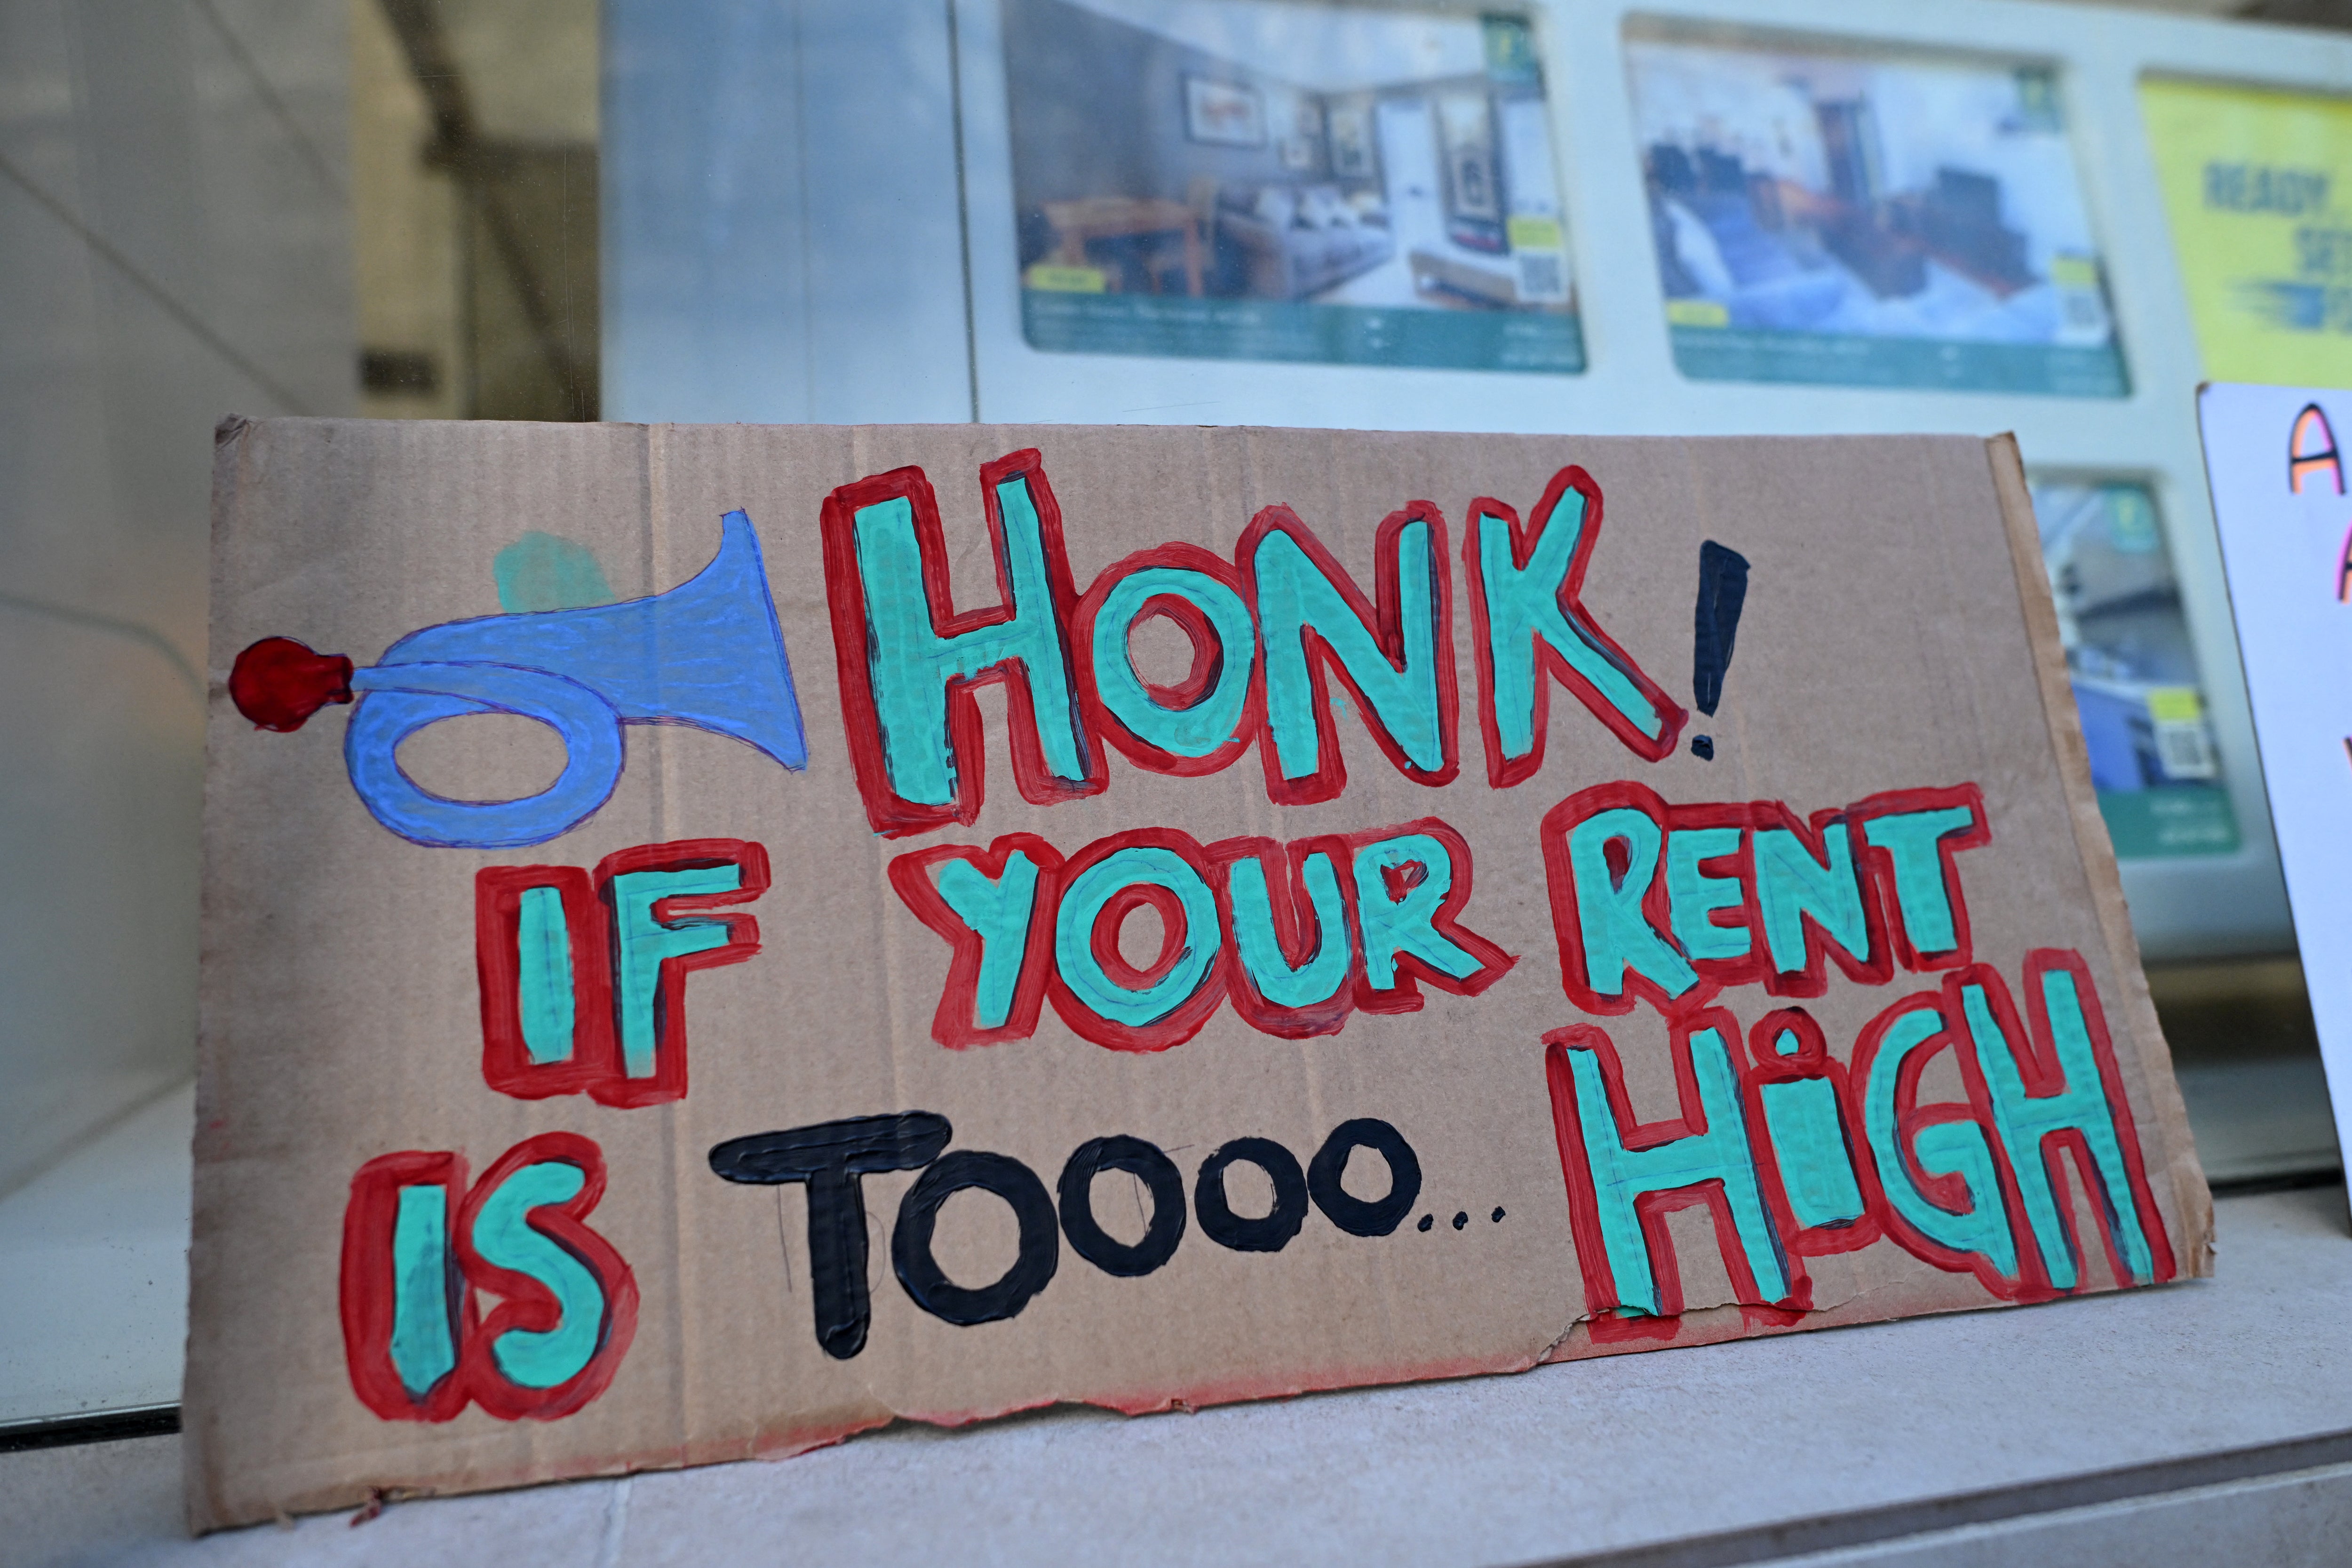 HONK!
IF YOUR RENT
IS TOOOO... HiGH
READY
SET
A